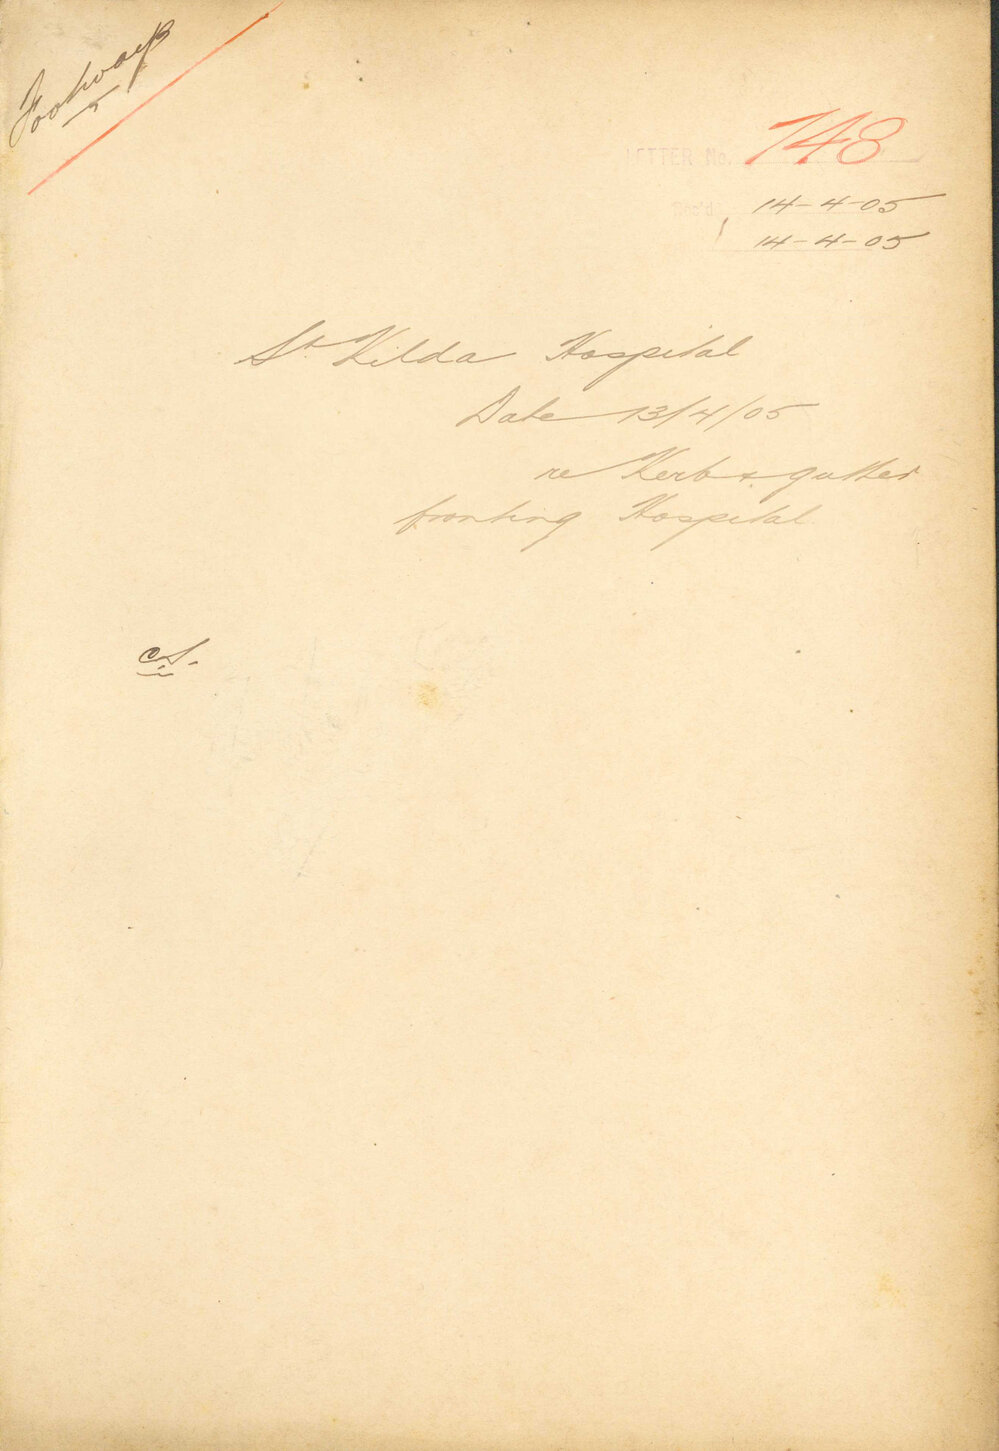 Footways
LETTER No. 748
Rec'd 14-4-05
14-4-05
St Kilda Hospital
Date 13/4/05
re Kerb & gutter
fronting Hospital